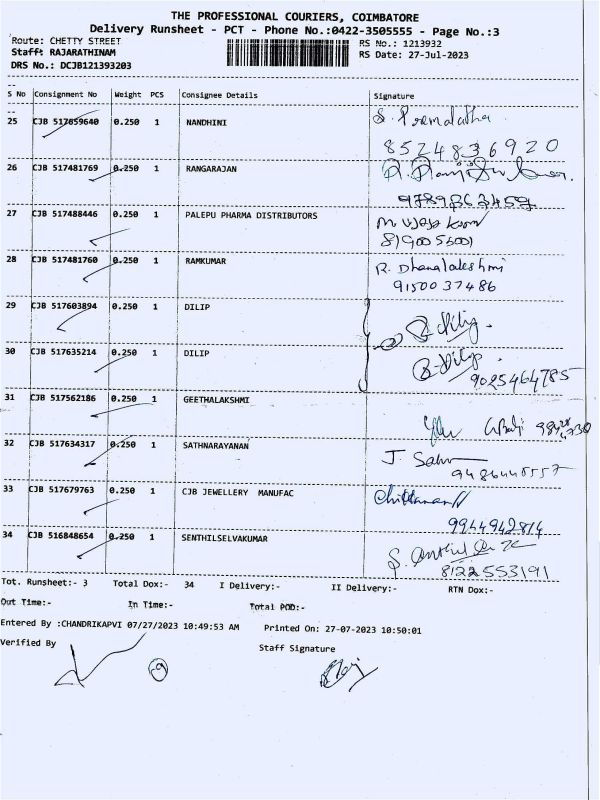 THE PROFESSIONAL COURIERS, COIMBATORE
Delivery Runsheet - PCT - Phone No.:0422-3505555 - Page No.:3
Route: CHETTY STREET RS No.: 1213932
Staff: RAJARATHINAM RS Date: 27-Jul-2023
DRS No.: DCJB121393203
S No Consignment No Weight PCS Consignee Details Signature
25 CJB 517659640 0.250 1 NANDHINI S. Premalatha
8524836920
26 CJB 517481769 0.250 1 RANGARAJAN
9789863459
27 CJB 517488446 0.250 1 PALEPU PHARMA DISTRIBUTORS
8190056001
28 CJB 517481760 0.250 1 RAMKUMAR R. Dhanalakshmi
9150037486
29 CJB 517603894 0.250 1 DILIP
30 CJB 517635214 0.250 1 DILIP B. Dilip
9025464785
31 CJB 517562186 0.250 1 GEETHALAKSHMI
32 CJB 517634317 0.250 1 SATHNARAYANAN J.
9486440557
33 CJB 517679763 0.250 1 CJB JEWELLERY MANUFAC
9944942814
34 CJB 516848654 0.250 1 SENTHILSELVAKUMAR
8122553191
Tot. Runsheet:- 3 Total Dox:- 34 I Delivery:- II Delivery:- RTN Dox:-
Out Time:- In Time:- Total POD:-
Entered By :CHANDRIKAPVI 07/27/2023 10:49:53 AM Printed On: 27-07-2023 10:50:01
Verified By Staff Signature